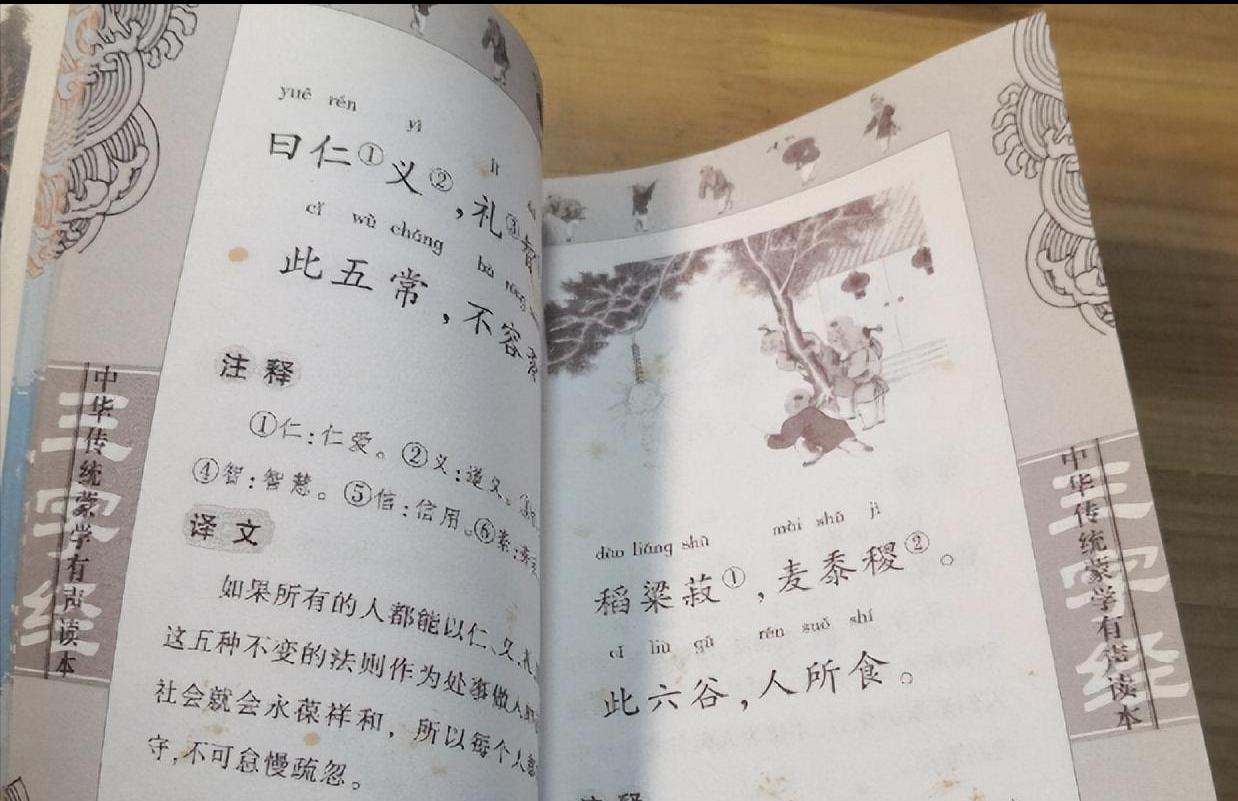 yuē rén yì lǐ
曰仁①义②,礼③智
cǐ wǔ cháng bù róng
此五常,不容紊
注释
①仁:仁爱。②义:道义。
④智:智慧。⑤信:信用。⑥紊:
译文
如果所有的人都能以仁、义、礼
这五种不变的法则作为处事做人
社会就会永葆祥和,所以每个人都
守,不可怠慢疏忽。
三字经
中华传统蒙学有声读本
dào liáng shū mài shǔ jì
稻粱菽①,麦黍稷②。
cǐ liù gǔ rén suǒ shí
此六谷,人所食。
注释
三字经
中华传统蒙学有声读本